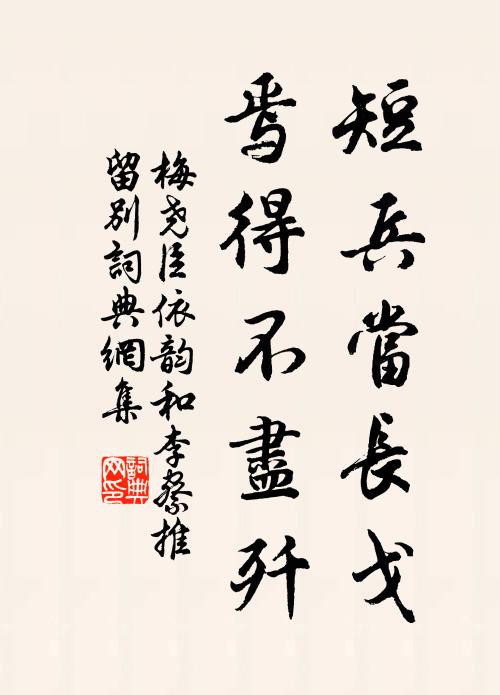 短兵當長戈
焉得不盡歼
梅堯臣依韵和李察推
留別詞典網集
詞典
网印